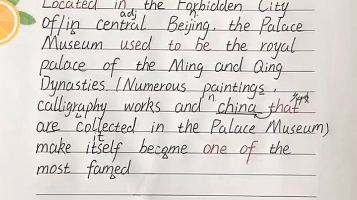 Located in the Forbidden City
adj
of/in central Beijing, the Palace
Museum used to be the royal
palace of the Ming and Qing
Dynasties (Numerous paintings,
n.
calligraphy works and china that
are collected in the Palace Museum)
it
make itself become one of the
most famed